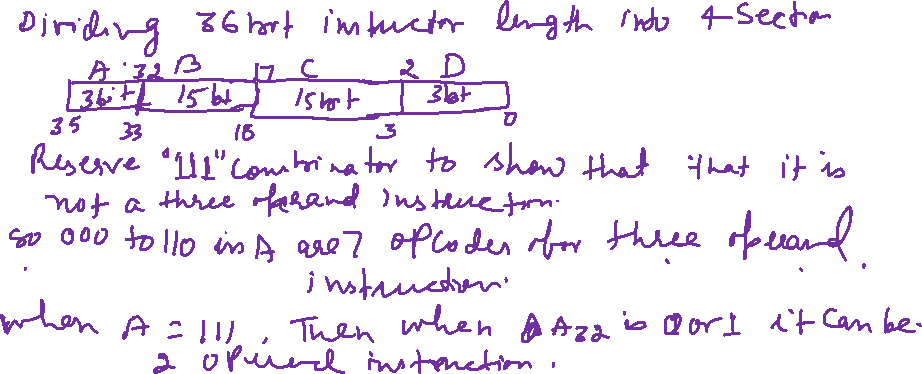 Dividing 36 bit instruction length into 4-Section
A 32 B 17 C 2 D
3bit 15 bit 15 bit 3bit
35 33 18 3 0
Reserve "111" Combinator to show that that it is
not a three operand instruction.
so 000 to 110 in A are 7 opcodes for three operand
instruction.
when A = 111, Then when A32 is 0 or 1 it can be
2 operand instruction.